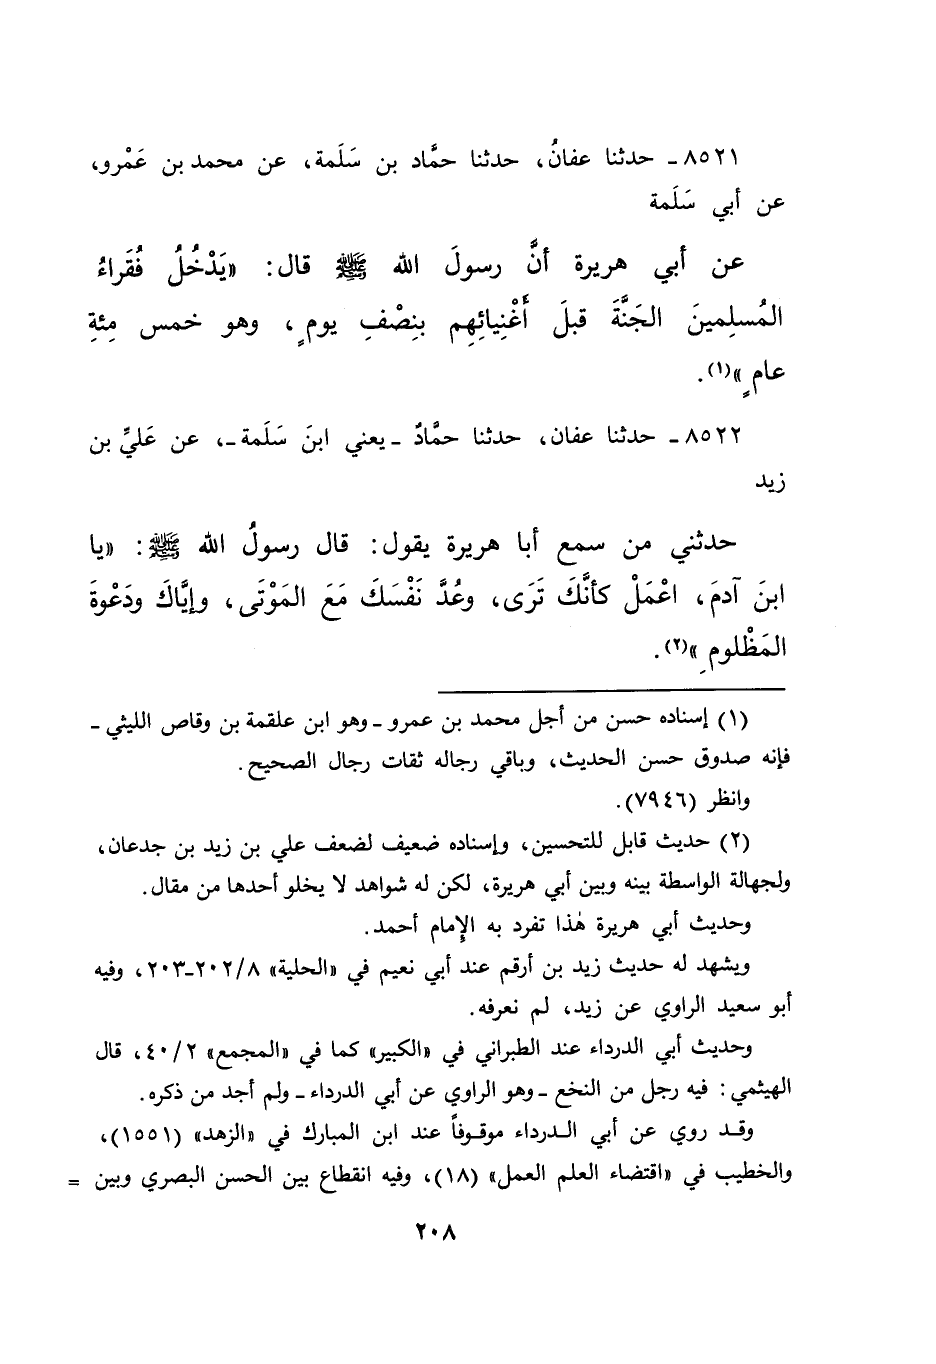 ٨٥٢١ـ حدثنا عفانُ، حدثنا حمَّاد بن سَلَمة، عن محمد بن عَمْرو،
عن أبي سَلَمة
عن أبي هريرة أنَّ رسولَ الله ﷺ قال: «يَدْخُلُ فُقَراءُ
المُسلِمينَ الجَنَّةَ قبلَ أَغْنِيائِهِم بنِصْفِ يومٍ، وهو خمس مِئةِ
عامٍ»(١).
٨٥٢٢ـ حدثنا عفان، حدثنا حمَّادٌ ـيعني ابنَ سَلَمة ـ، عن عَليِّ بن
زيد
حدثني من سمع أبا هريرة يقول: قال رسولُ الله ﷺ: «يا
ابنَ آدمَ، اعْمَلْ كأنَّكَ تَرَى، وعُدَّ نَفْسَكَ مَعَ المَوْتَى، وإيَّاكَ ودَعْوةَ
المَظْلومِ»(٢).
(١) إسناده حسن من أجل محمد بن عمرو ـ وهو ابن علقمة بن وقاص الليثي ـ
فإنه صدوق حسن الحديث، وباقي رجاله ثقات رجال الصحيح.
وانظر (٧٩٤٦).
(٢) حديث قابل للتحسين، وإسناده ضعيف لضعف علي بن زيد بن جدعان،
ولجهالة الواسطة بينه وبين أبي هريرة، لكن له شواهد لا يخلو أحدها من مقال.
وحديث أبي هريرة هٰذا تفرد به الإمام أحمد.
ويشهد له حديث زيد بن أرقم عند أبي نعيم في «الحلية» ٢٠٢/٨ـ٢٠٣، وفيه
أبو سعيد الراوي عن زيد، لم نعرفه.
وحديث أبي الدرداء عند الطبراني في «الكبير» كما في «المجمع» ٤٠/٢، قال
الهيثمي: فيه رجل من النخع ـ وهو الراوي عن أبي الدرداء ـ ولم أجد من ذكره.
وقد روي عن أبي الدرداء موقوفاً عند ابن المبارك في «الزهد» (١٥٥١)،
والخطيب في «اقتضاء العلم العمل» (١٨)، وفيه انقطاع بين الحسن البصري وبين =
٢٠٨